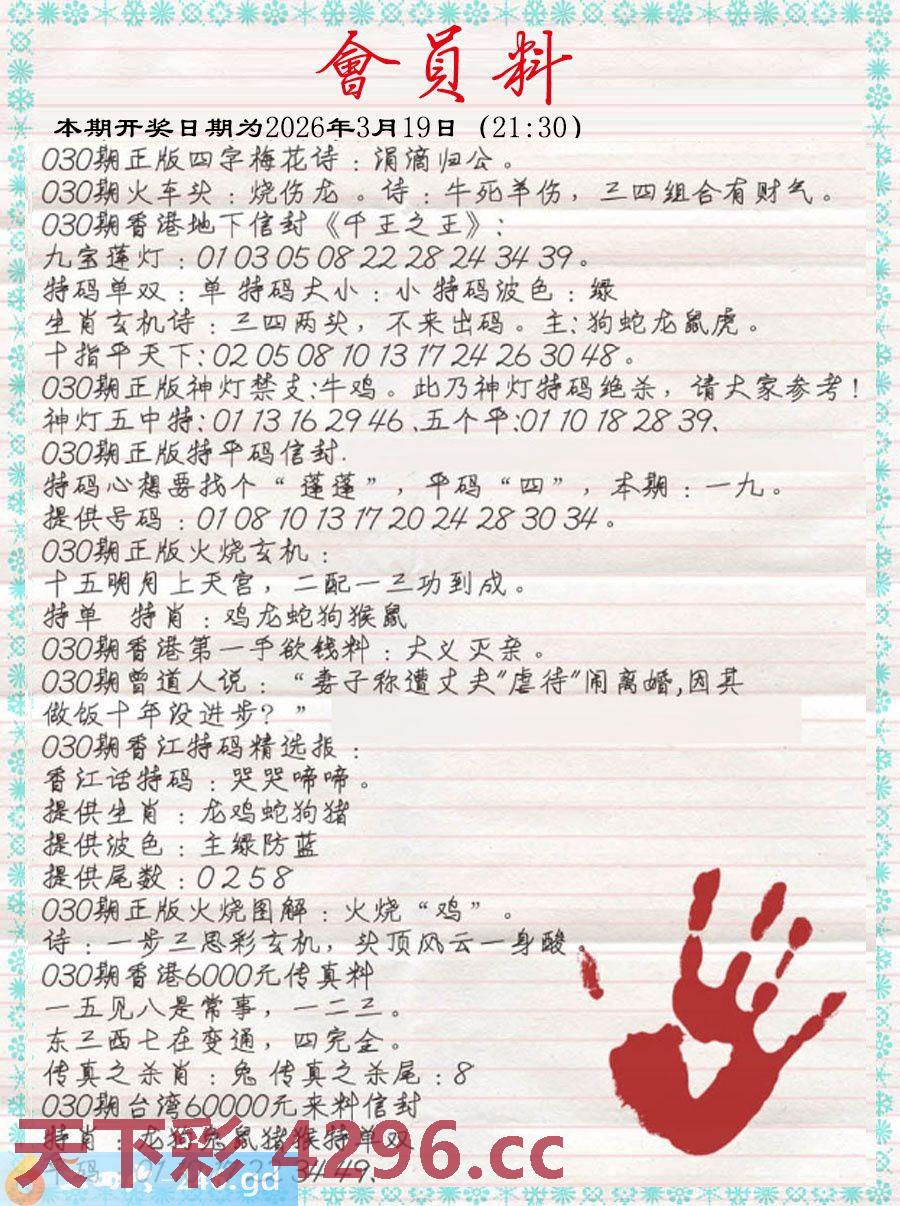 會員料
本期开奖日期为2026年3月19日（21:30）
030期正版四字梅花诗：涓滴归公。
030期火车头：烧伤龙。诗：牛死羊伤，三四组合有财气。
030期香港地下信封《千王之王》：
九宝莲灯：01 03 05 08 22 28 24 34 39。
特码单双：单 特码大小：小 特码波色：绿
生肖玄机诗：三四两头，不来出码。主：狗蛇龙鼠虎。
十指平天下：02 05 08 10 13 17 24 26 30 48。
030期正版神灯禁支：牛鸡。此乃神灯特码绝杀，请大家参考！
神灯五中特：01 13 16 29 46、五个平：01 10 18 28 39、
030期正版特平码信封.
特码心想要找个“蓬蓬”，平码“四”，本期：一九。
提供号码：01 08 10 13 17 20 24 28 30 34。
030期正版火烧玄机：
十五明月上天宫，二配一三功到成。
特单 特肖：鸡龙蛇狗猴鼠
030期香港第一手欲钱料：大义灭亲。
030期曾道人说：“妻子称遭丈夫"虐待"闹离婚,因其
做饭十年没进步？”
030期香江特码精选报：
香江话特码：哭哭啼啼。
提供生肖：龙鸡蛇狗猪
提供波色：主绿防蓝
提供尾数：0 2 5 8
030期正版火烧图解：火烧“鸡”。
诗：一步三思彩玄机，头顶风云一身酸。
030期香港6000元传真料
一五见八是常事，一二三。
东三西七在变通，四完全。
传真之杀肖：兔 传真之杀尾：8
030期台湾60000元来料信封
特肖：龙狗兔鼠猪猴特单双
天下彩.4296.cc
34 49、